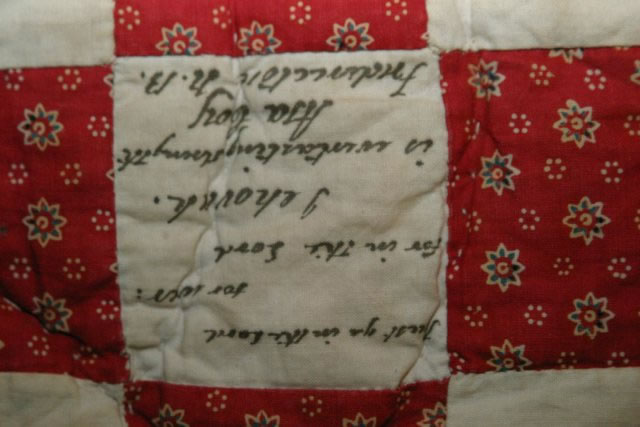 Trust ye in the Lord
for ever:
for in the Lord
Jehovah.
is everlasting strength
Asa Coy
Fredericton N. B.